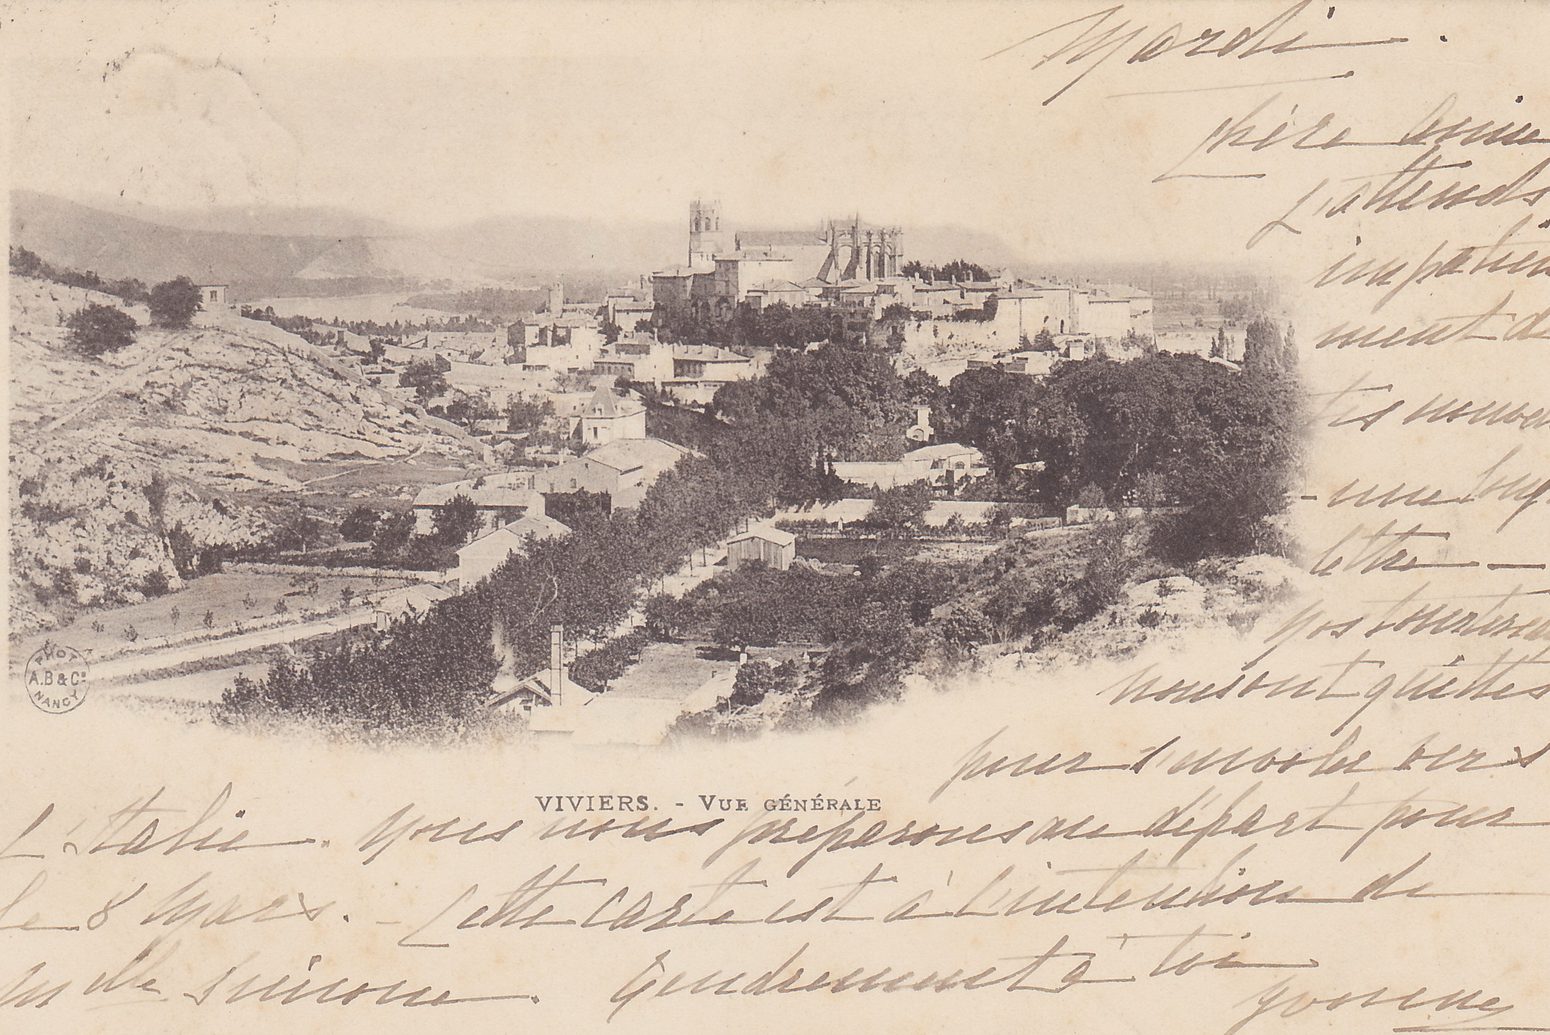 Mardi.
Chère amie
J'attends
impatiem
ment de
tes nouvel
une long
lettre —
Nos touristes
nous ont quittés
pour s'envoler vers
L'Italie. Nous nous préparons au départ pour
le 8 Mars. - Cette carte est à l'intention de
Mlle Simone. Tendrement à toi
VIVIERS. - VUE GÉNÉRALE
PHOT.
A.B & Cie
NANCY